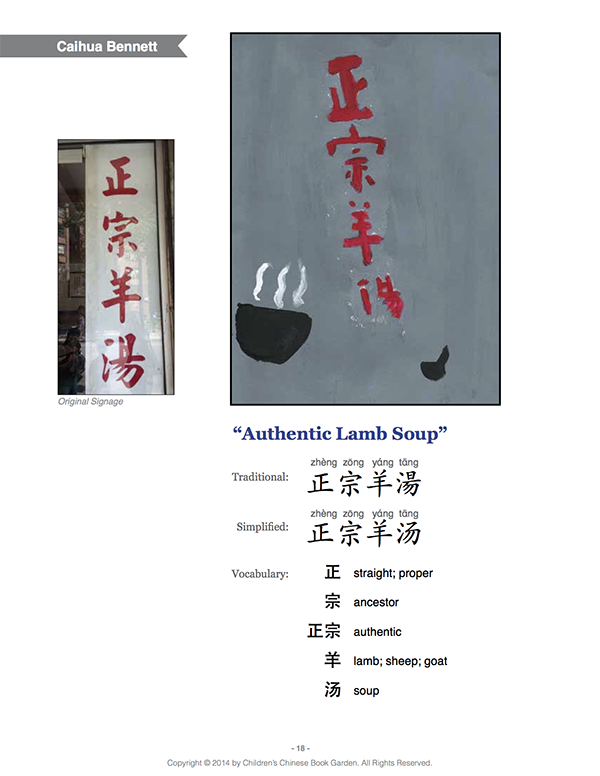 Caihua Bennett
正
宗
羊
湯
Original Signage
正
宗
羊
湯
“Authentic Lamb Soup”
zhèng zōng yáng tāng
Traditional: 正宗羊湯
zhèng zōng yáng tāng
Simplified: 正宗羊汤
Vocabulary: 正 straight; proper
宗 ancestor
正宗 authentic
羊 lamb; sheep; goat
汤 soup
- 18 -
Copyright © 2014 by Children's Chinese Book Garden. All Rights Reserved.